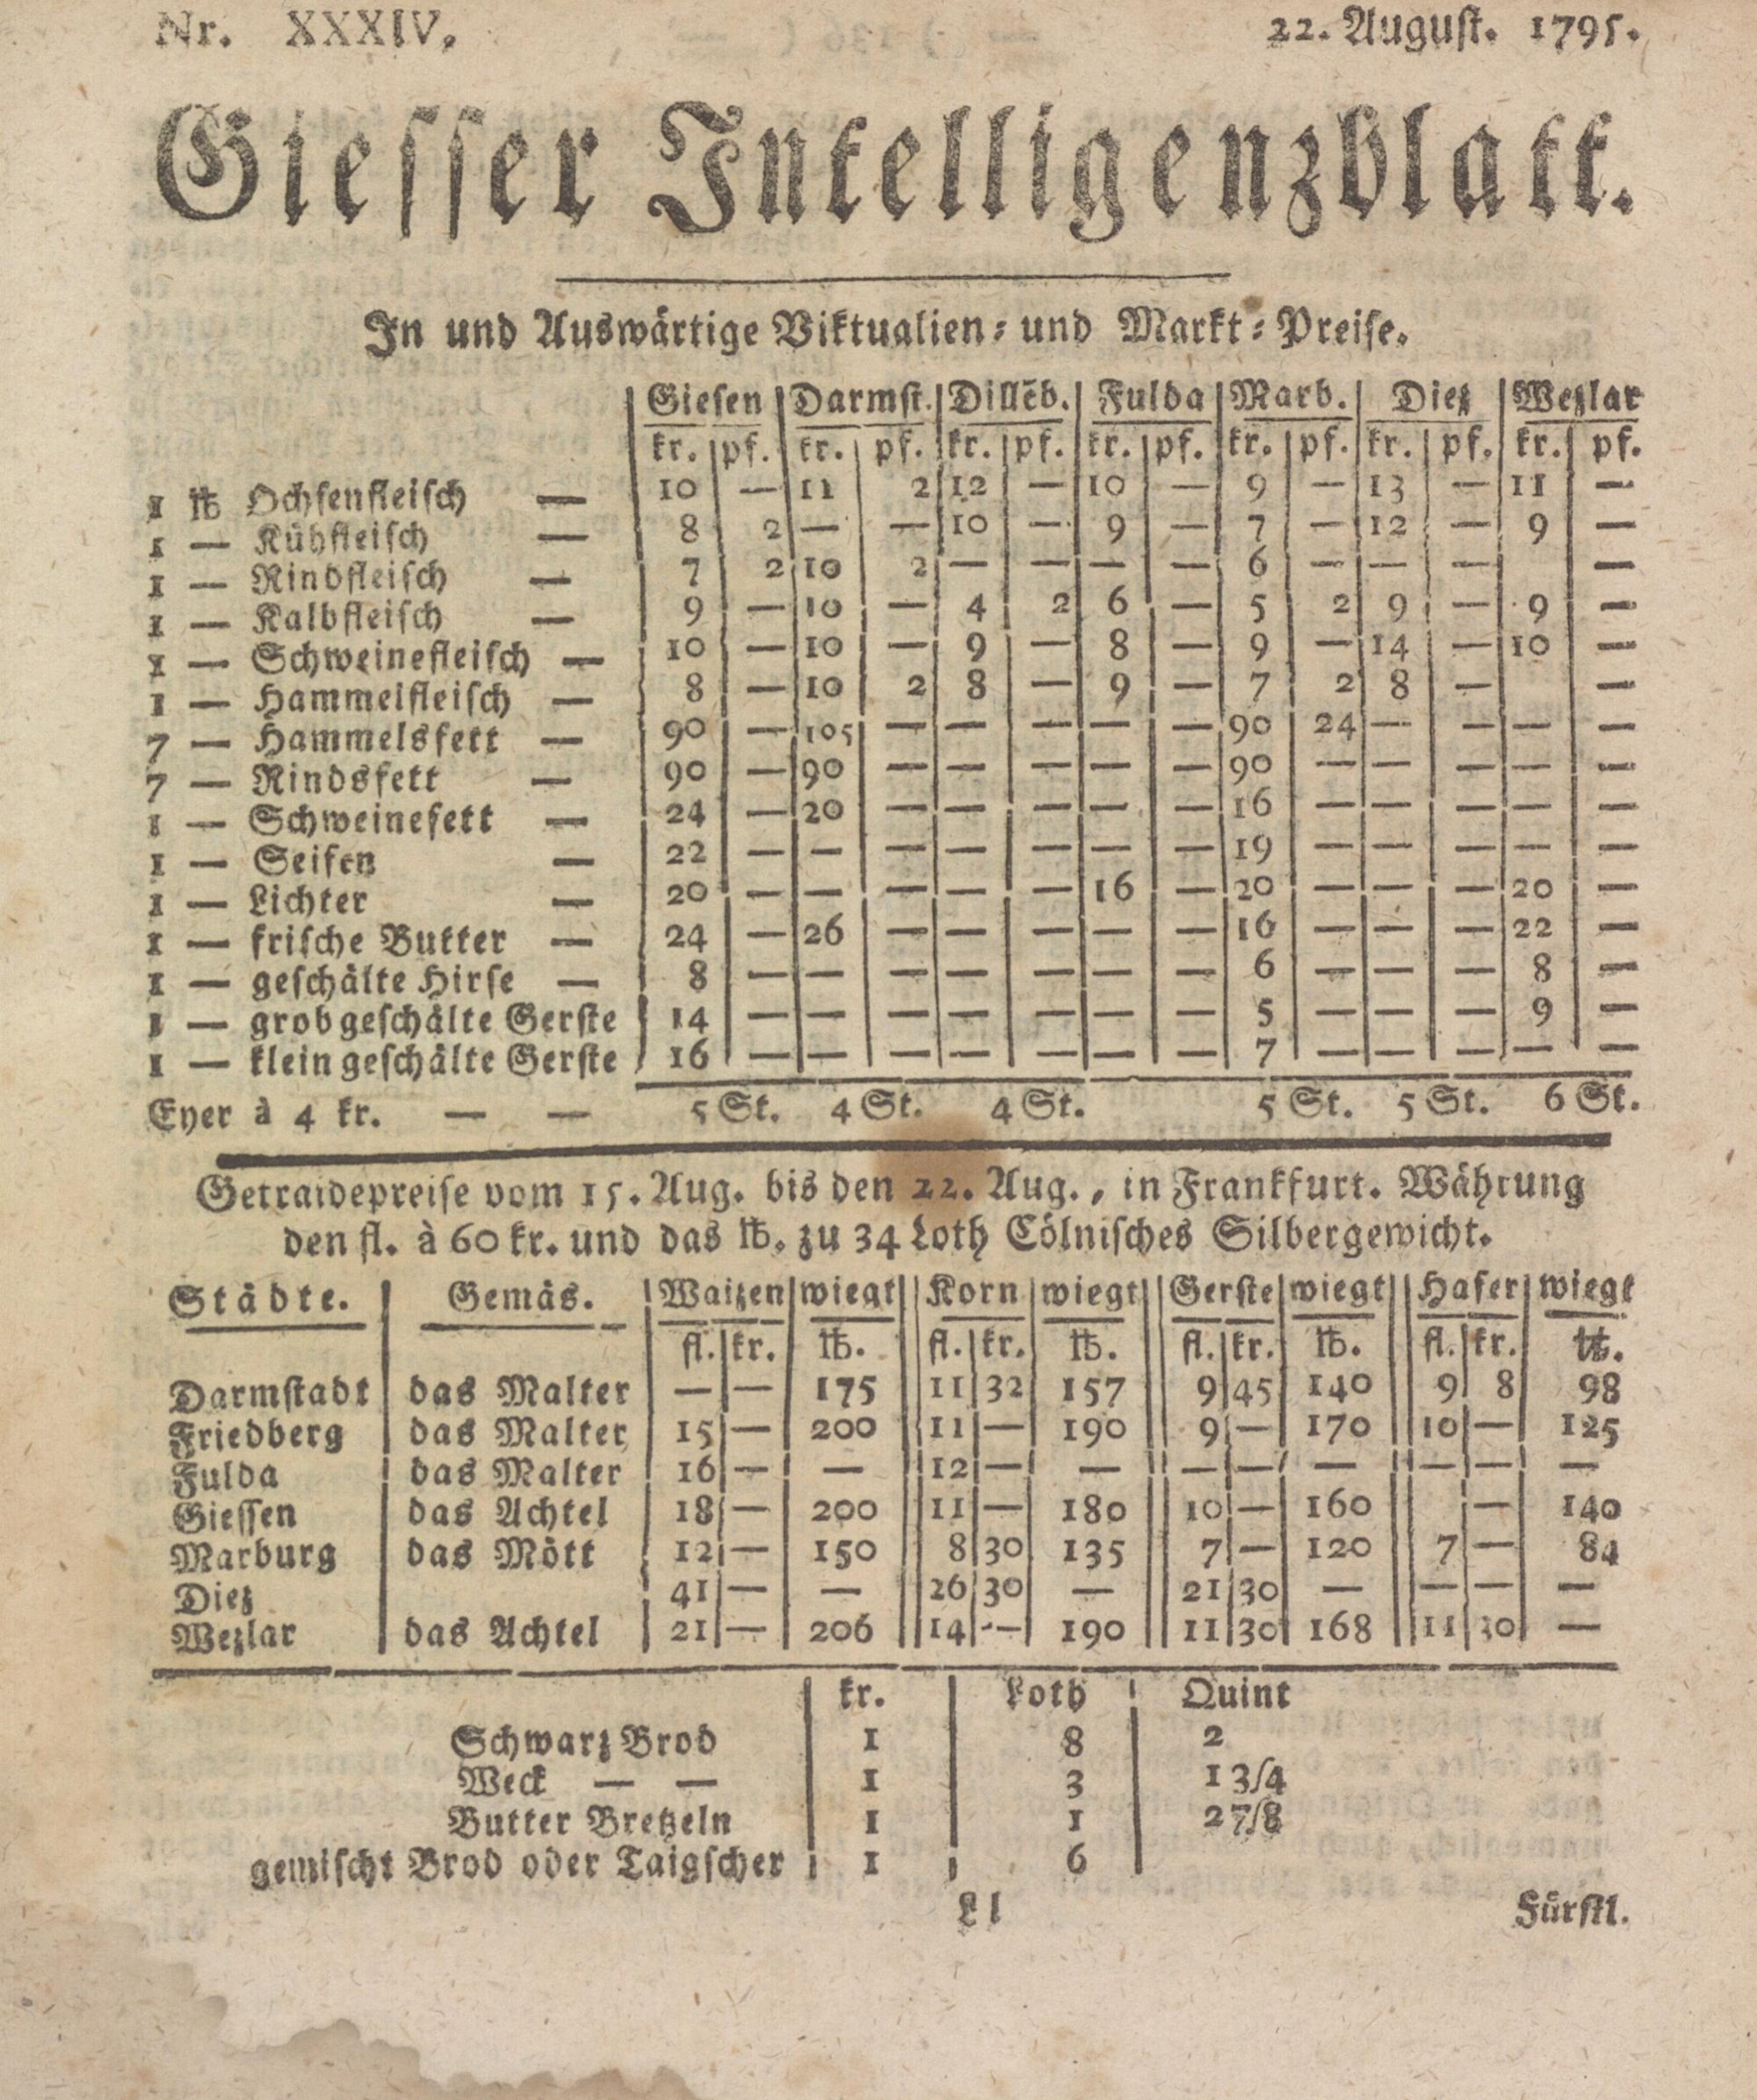 Nr. XXXIV. 22. Auguſt. 1795.
Gieſſer Intelligenzblatt.
In und Auswärtige Viktualien- und Markt-Preiſe.
Gieſen Darmſt. Dillēb. Fulda Marb. Diez Wezlar
kr. pf. kr. pf. kr. pf. kr. pf. kr. pf. kr. pf. kr. pf.
1 ℔ Ochſenfleiſch — 10 — 11 2 12 — 10 — 9 — 13 — 11 —
1 — Kühfleiſch — 8 2 — — 10 — 9 — 7 — 12 — 9 —
1 — Rindfleiſch — 7 2 10 2 — — — — 6 — — — —
1 — Kalbfleiſch — 9 — 10 — 4 2 6 — 5 2 9 — 9 —
1 — Schweinefleiſch — 10 — 10 — 9 — 8 — 9 — 14 — 10 —
1 — Hammelfleiſch — 8 — 10 2 8 — 9 — 7 2 8 — —
7 — Hammelsfett — 90 — 105 — — — — — 90 24 — — — —
7 — Rindsfett — 90 — 90 — — — — — 90 — — — — —
1 — Schweinefett — 24 — 20 — — — — — 16 — — — — —
1 — Seifen — 22 — — — — — — — 19 — — — — —
1 — Lichter — 20 — — — — — 16 — 20 — — — 20 —
1 — friſche Butter — 24 — 26 — — — — — 16 — — — 22 —
1 — geſchälte Hirſe — 8 — — — — — — — 6 — — — 8 —
1 — grob geſchälte Gerſte 14 — — — — — — — 5 — — — 9 —
1 — klein geſchälte Gerſte 16 — — — — — — — 7 — — — — —
Eyer à 4 kr. — — 5 St. 4 St. 4 St. 5 St. 5 St. 6 St.
Getraidepreiſe vom 15. Aug. bis den 22. Aug., in Frankfurt. Währung
den fl. à 60 kr. und das ℔. zu 34 Loth Cölniſches Silbergewicht.
Städte. Gemäs. Waizen wiegt Korn wiegt Gerſte wiegt Hafer wiegt
fl. kr. ℔. fl. kr. ℔. fl. kr. ℔. fl. kr. ℔.
Darmſtadt das Malter — — 175 11 32 157 9 45 140 9 8 98
Friedberg das Malter 15 — 200 11 — 190 9 — 170 10 — 125
Fulda das Malter 16 — — 12 — — — — — — — —
Gieſſen das Achtel 18 — 200 11 — 180 10 — 160 — 140
Marburg das Mött 12 — 150 8 30 135 7 — 120 7 — 84
Diez 41 — — 26 30 — 21 30 — — — —
Wezlar das Achtel 21 — 206 14 — 190 11 30 168 11 30 —
kr. Loth Quint
Schwarz Brod 1 8 2
Weck — — 1 3 1 3/4
Butter Bretzeln 1 1 2 7/8
gemiſcht Brod oder Taigſcher 1 6
Ll Fürſtl.